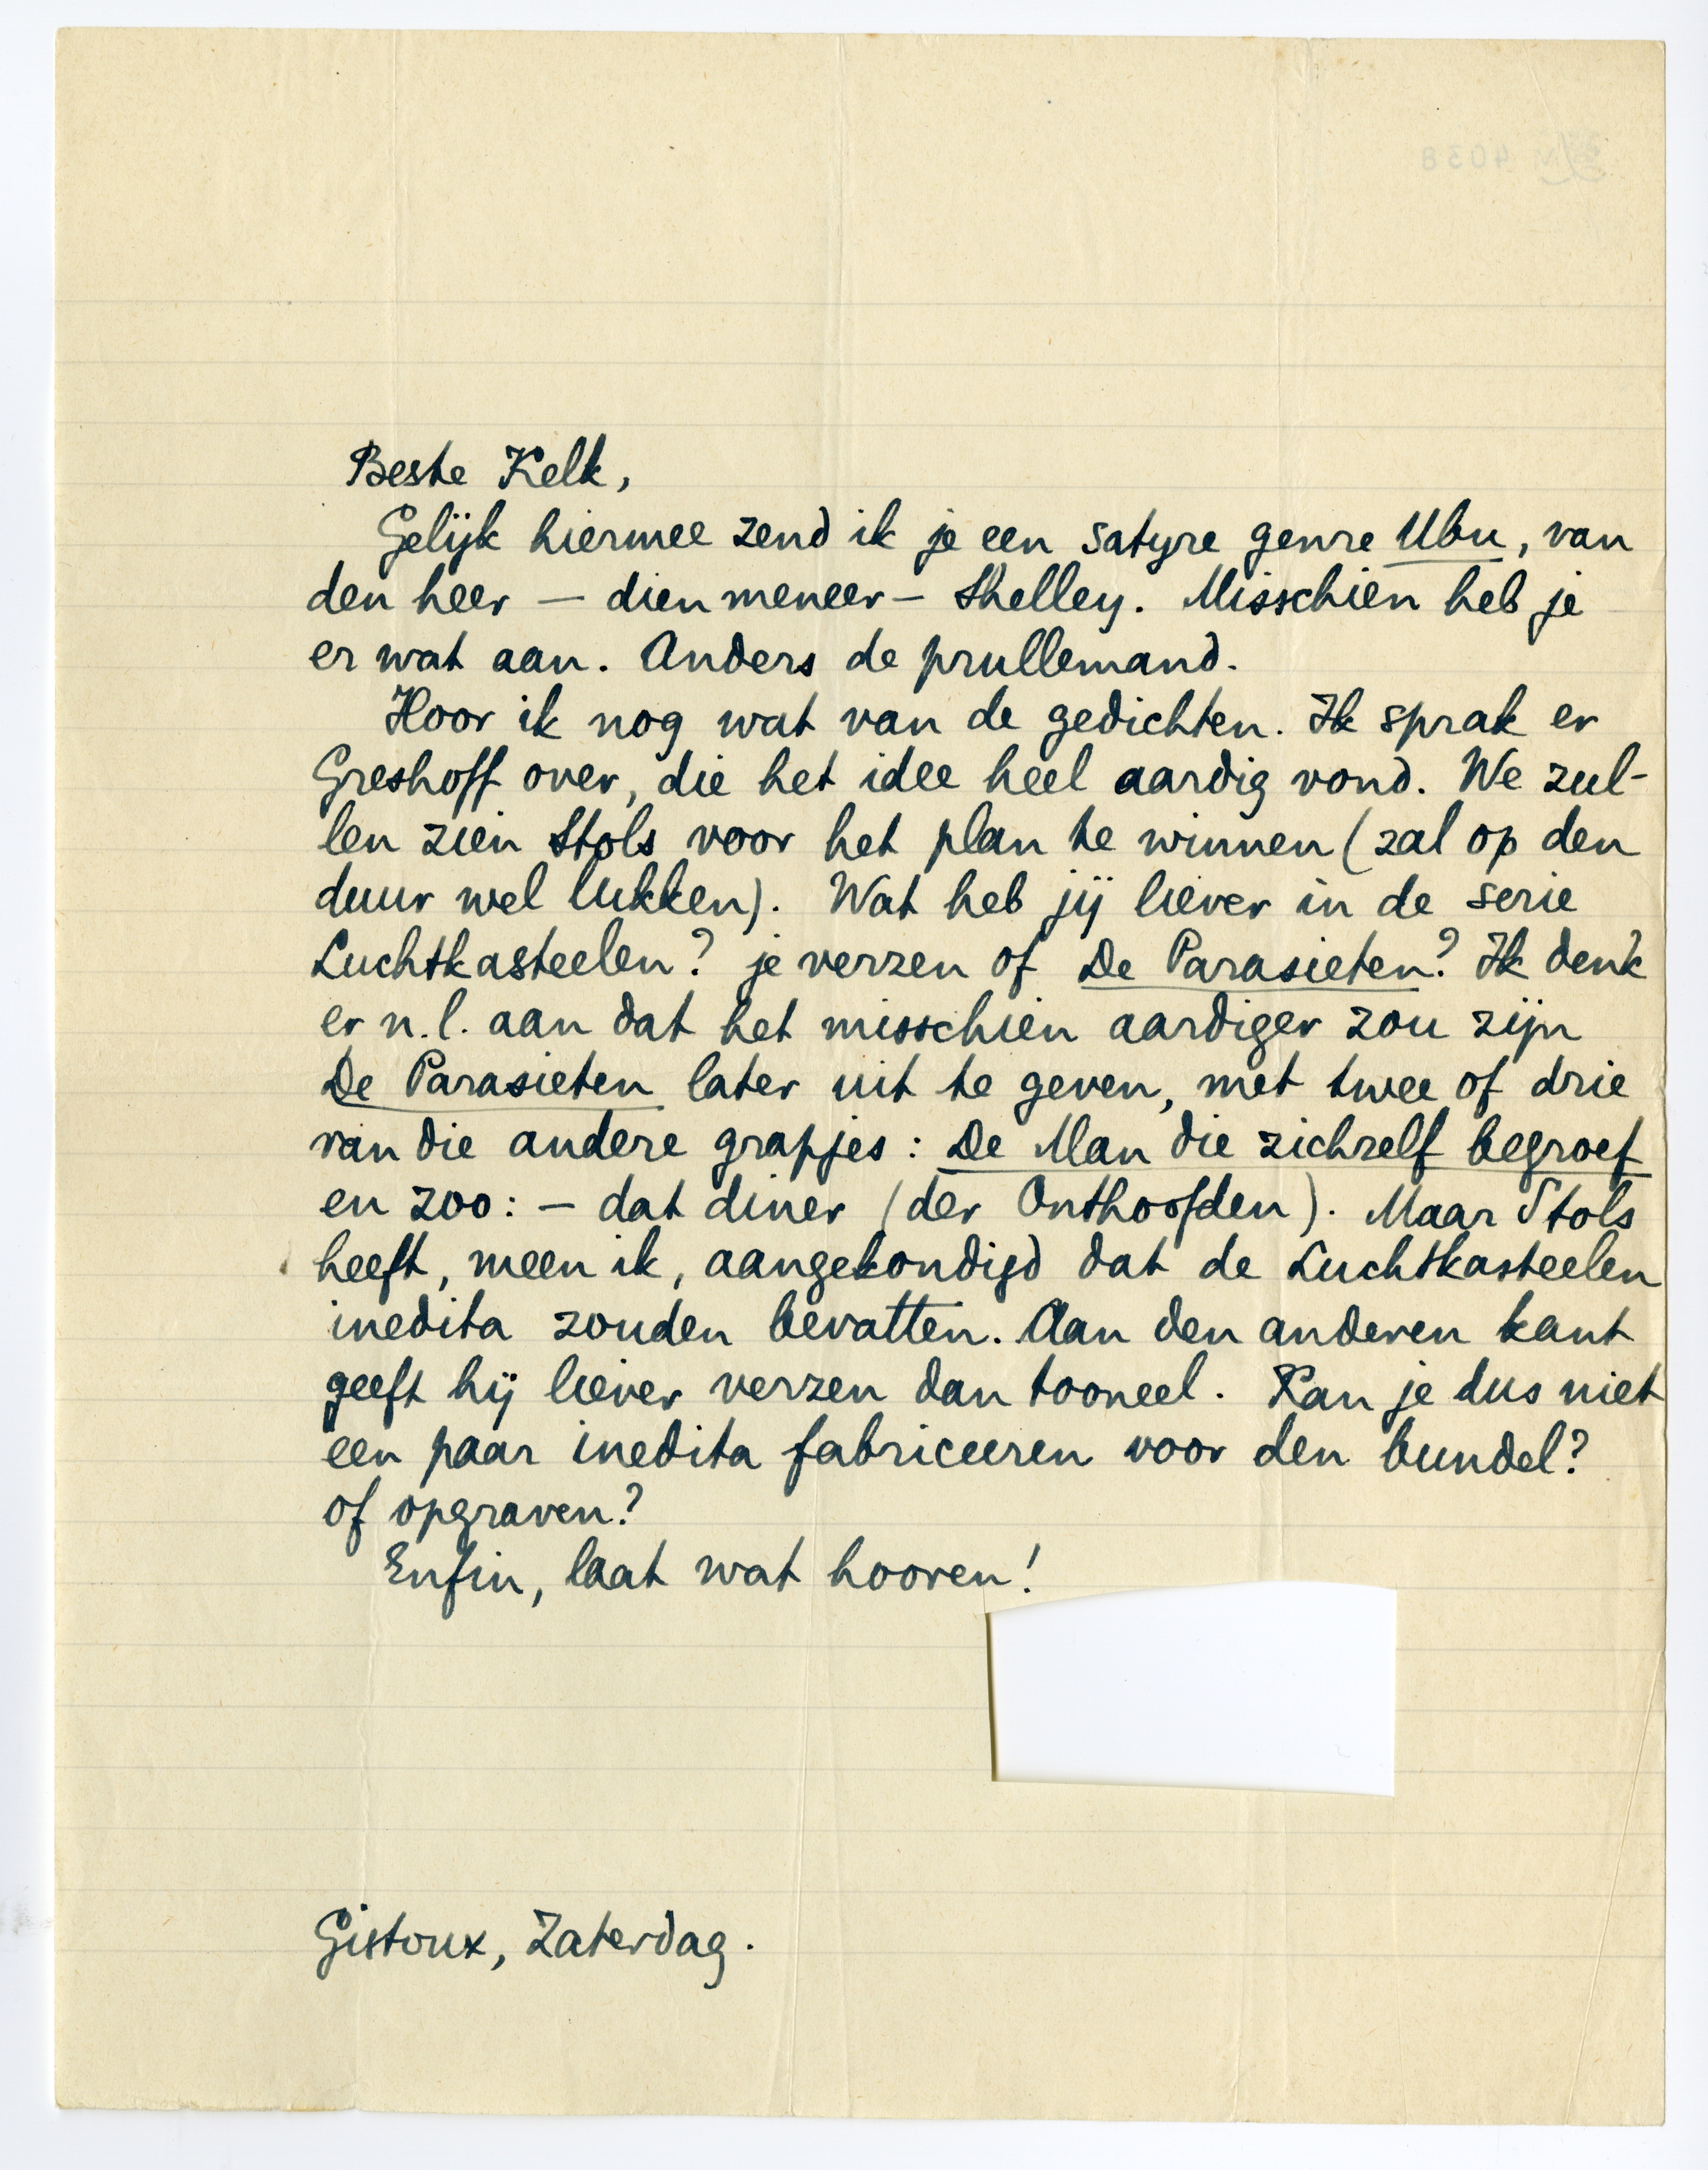 Beste Kelk,
Gelijk hiermee zend ik je een satyre genre Ubu, van
den heer — dien meneer — Shelley. Misschien heb je
er wat aan. Anders de prullemand.
Hoor ik nog wat van de gedichten. Ik sprak er
Greshoff over, die het idee heel aardig vond. We zul-
len zien Stols voor het plan te winnen (zal op den
duur wel lukken). Wat heb jij liever in de serie
Luchtkasteelen? je verzen of De Parasieten? Ik denk
er n.l. aan dat het misschien aardiger zou zijn
De Parasieten later uit te geven, met twee of drie
van die andere grapjes: De Man die zichzelf begroef
en zoo: — dat diner (der Onthoofden). Maar Stols
heeft, meen ik, aangekondigd dat de Luchtkasteelen
inedita zouden bevatten. Aan den anderen kant
geeft hij liever verzen dan tooneel. Kan je dus niet
een paar inedita fabriceeren voor den bundel?
of opgraven?
Enfin, laat wat hooren!
Gistoux, Zaterdag.